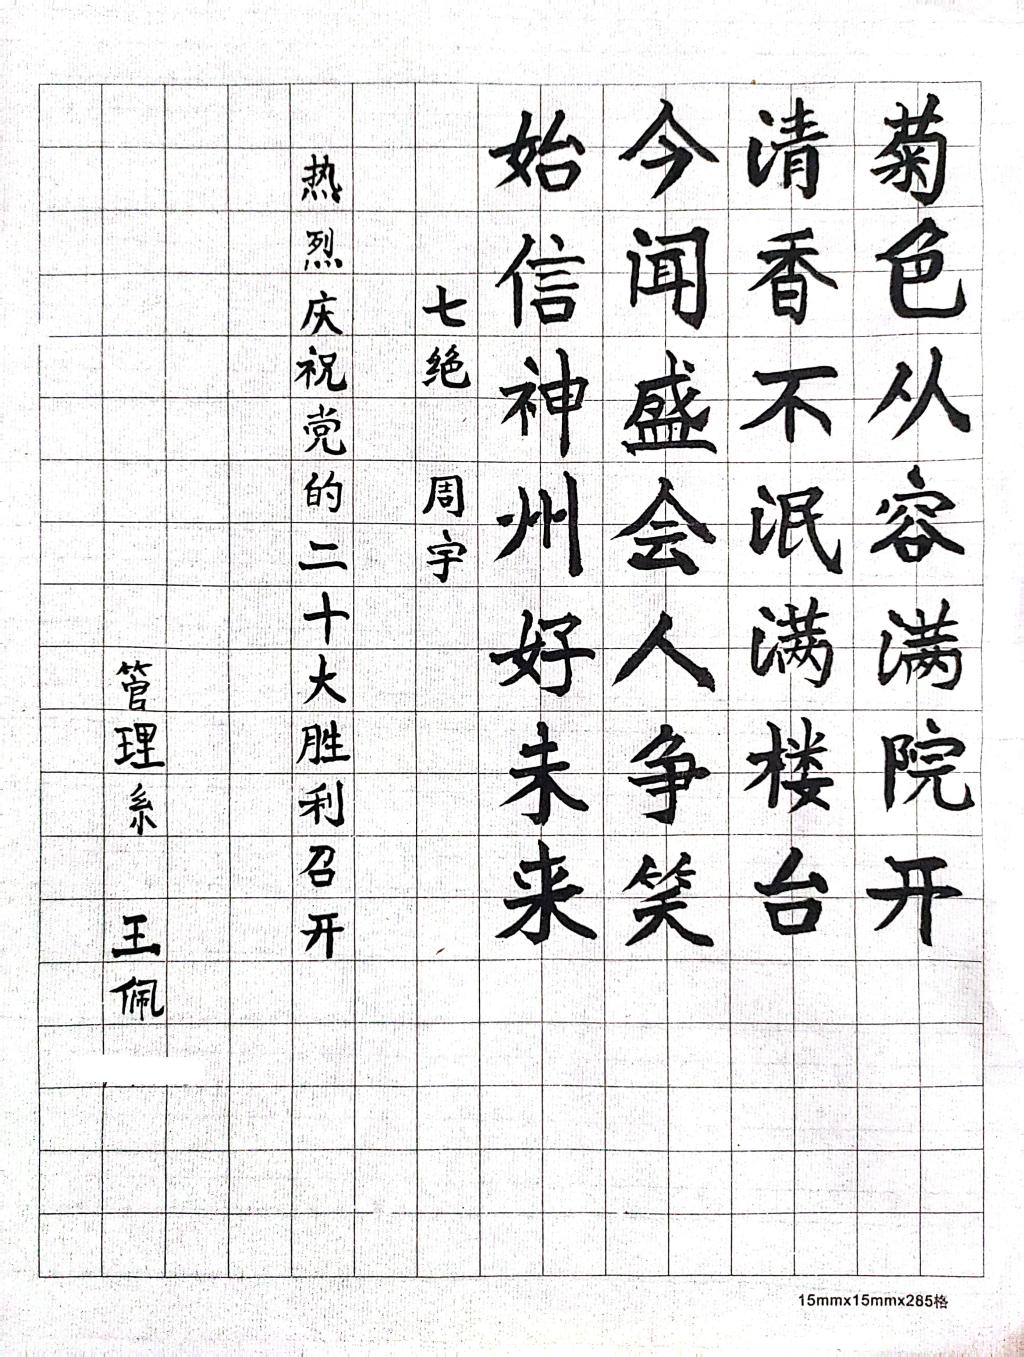 菊色从容满院开
清香不泯满楼台
今闻盛会人争笑
始信神州好未来
七绝 周宇
热烈庆祝党的二十大胜利召开
管理系 王佩
15mmx15mmx285格